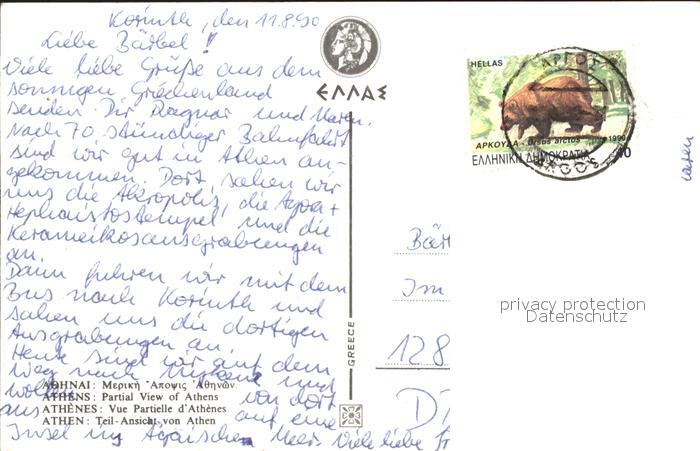 Korinth, den 11.8.90
Liebe Bärbel!
Viele liebe Grüße aus dem
sonnigen Griechenland
senden Dir Ragnar und Maren.
Nach 70 stündiger Bahnfahrt
sind wir gut in Athen an-
gekommen. Dort sahen wir
uns die Akropolis, die Agora +
Hephaistostempel und die
Kerameikosausgrabungen
an.
Dann fuhren wir mit dem
Bus nach Korinth und
sahen uns die dortigen
Ausgrabungen an.
Heute sind wir auf dem
Weg nach und
wollen von dort
aus auf eine
Insel im Ägäischen Meer. Viele liebe
ΑΘΗΝΑΙ: Μερική Ἄποψις Ἀθηνῶν
ATHENS: Partial View of Athens
ATHÈNES: Vue Partielle d'Athènes
ATHEN: Teil-Ansicht von Athen
ΕΛΛΑΣ
GREECE
HELLAS
ΑΡΚΟΥΔΑ - Ursus arctos 1990
ΕΛΛΗΝΙΚΗ ΔΗΜΟΚΡΑΤΙΑ 40
ΑΡΓΟΣ
ARGOS
Bärb
Im
128
D
privacy protection
Datenschutz